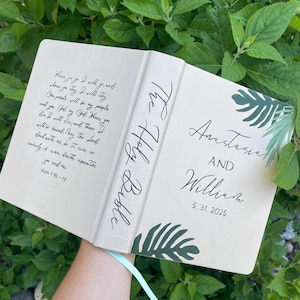 Where you go I will go and
where you stay I will stay
Your people will be my people
and your God my God. Where you
die I will die, and there I
will be buried. May the Lord
deal with me
if even death separates
you and me
Ruth 1:16-17
The Holy Bible
Anastasia
AND
William
5.31.2025